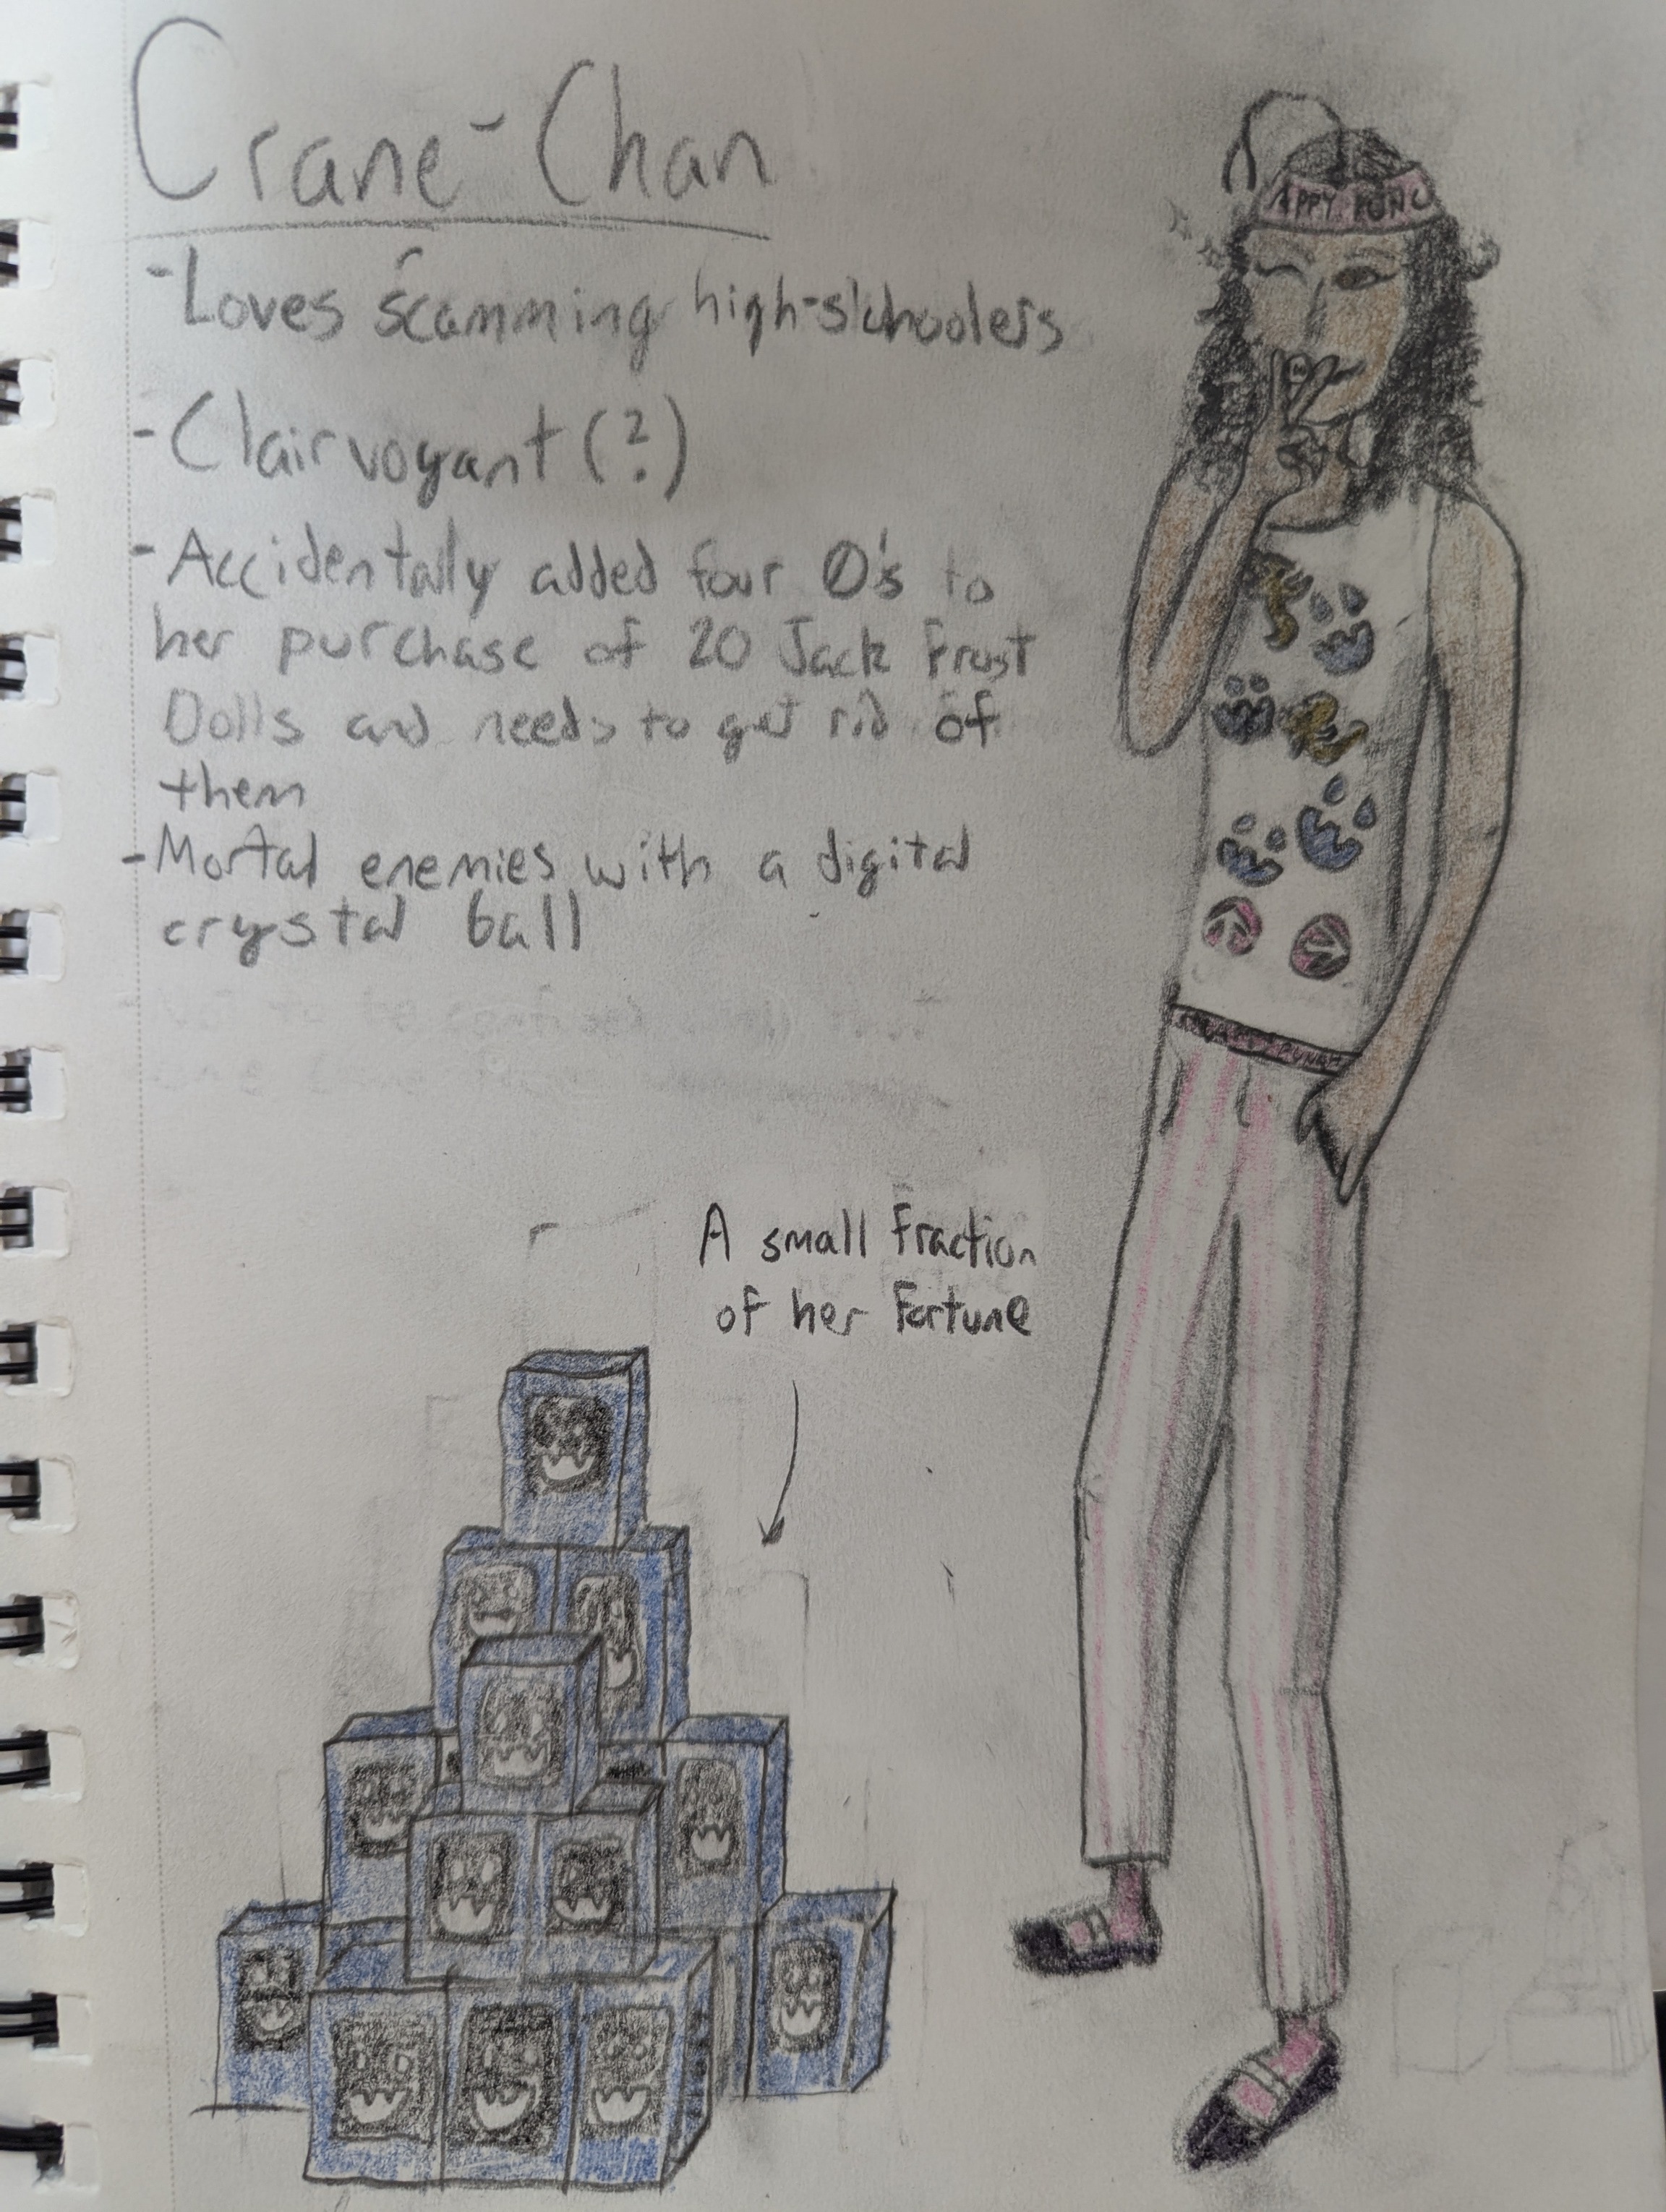 Crane-Chan
APPY PUNC
-Loves scamming high-schoolers
-Clairvoyant (?)
-Accidentally added four 0's to
her purchase of 20 Jack Frost
Dolls and needs to get rid of
them
-Mortal enemies with a digital
crystal ball
PUNCH
A small fraction
of her fortune